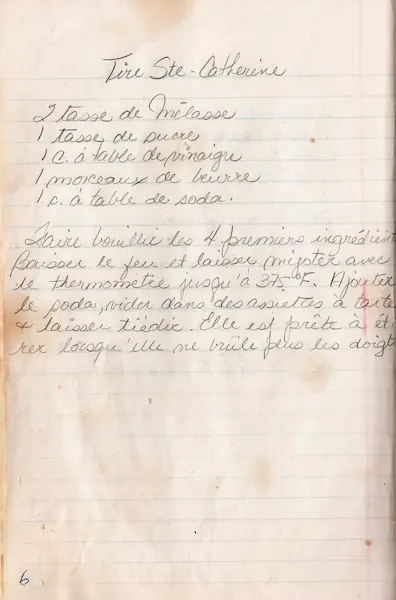 Tire Ste-Catherine
2 tasse de Mélasse
1 tasse de sucre
1 c. à table de vinaigre
1 morceaux de beurre
1 c. à table de soda.
Faire bouillir les 4 premiers ingrédient
Baisser le feu et laisser mijoter avec
le thermomètre jusqu'à °F. Ajouter
le soda, vider dans des assiettes à tarte
& laisser tiédir. Elle est prête à éti
rer lorsqu'elle ne brûle plus les doigt
6